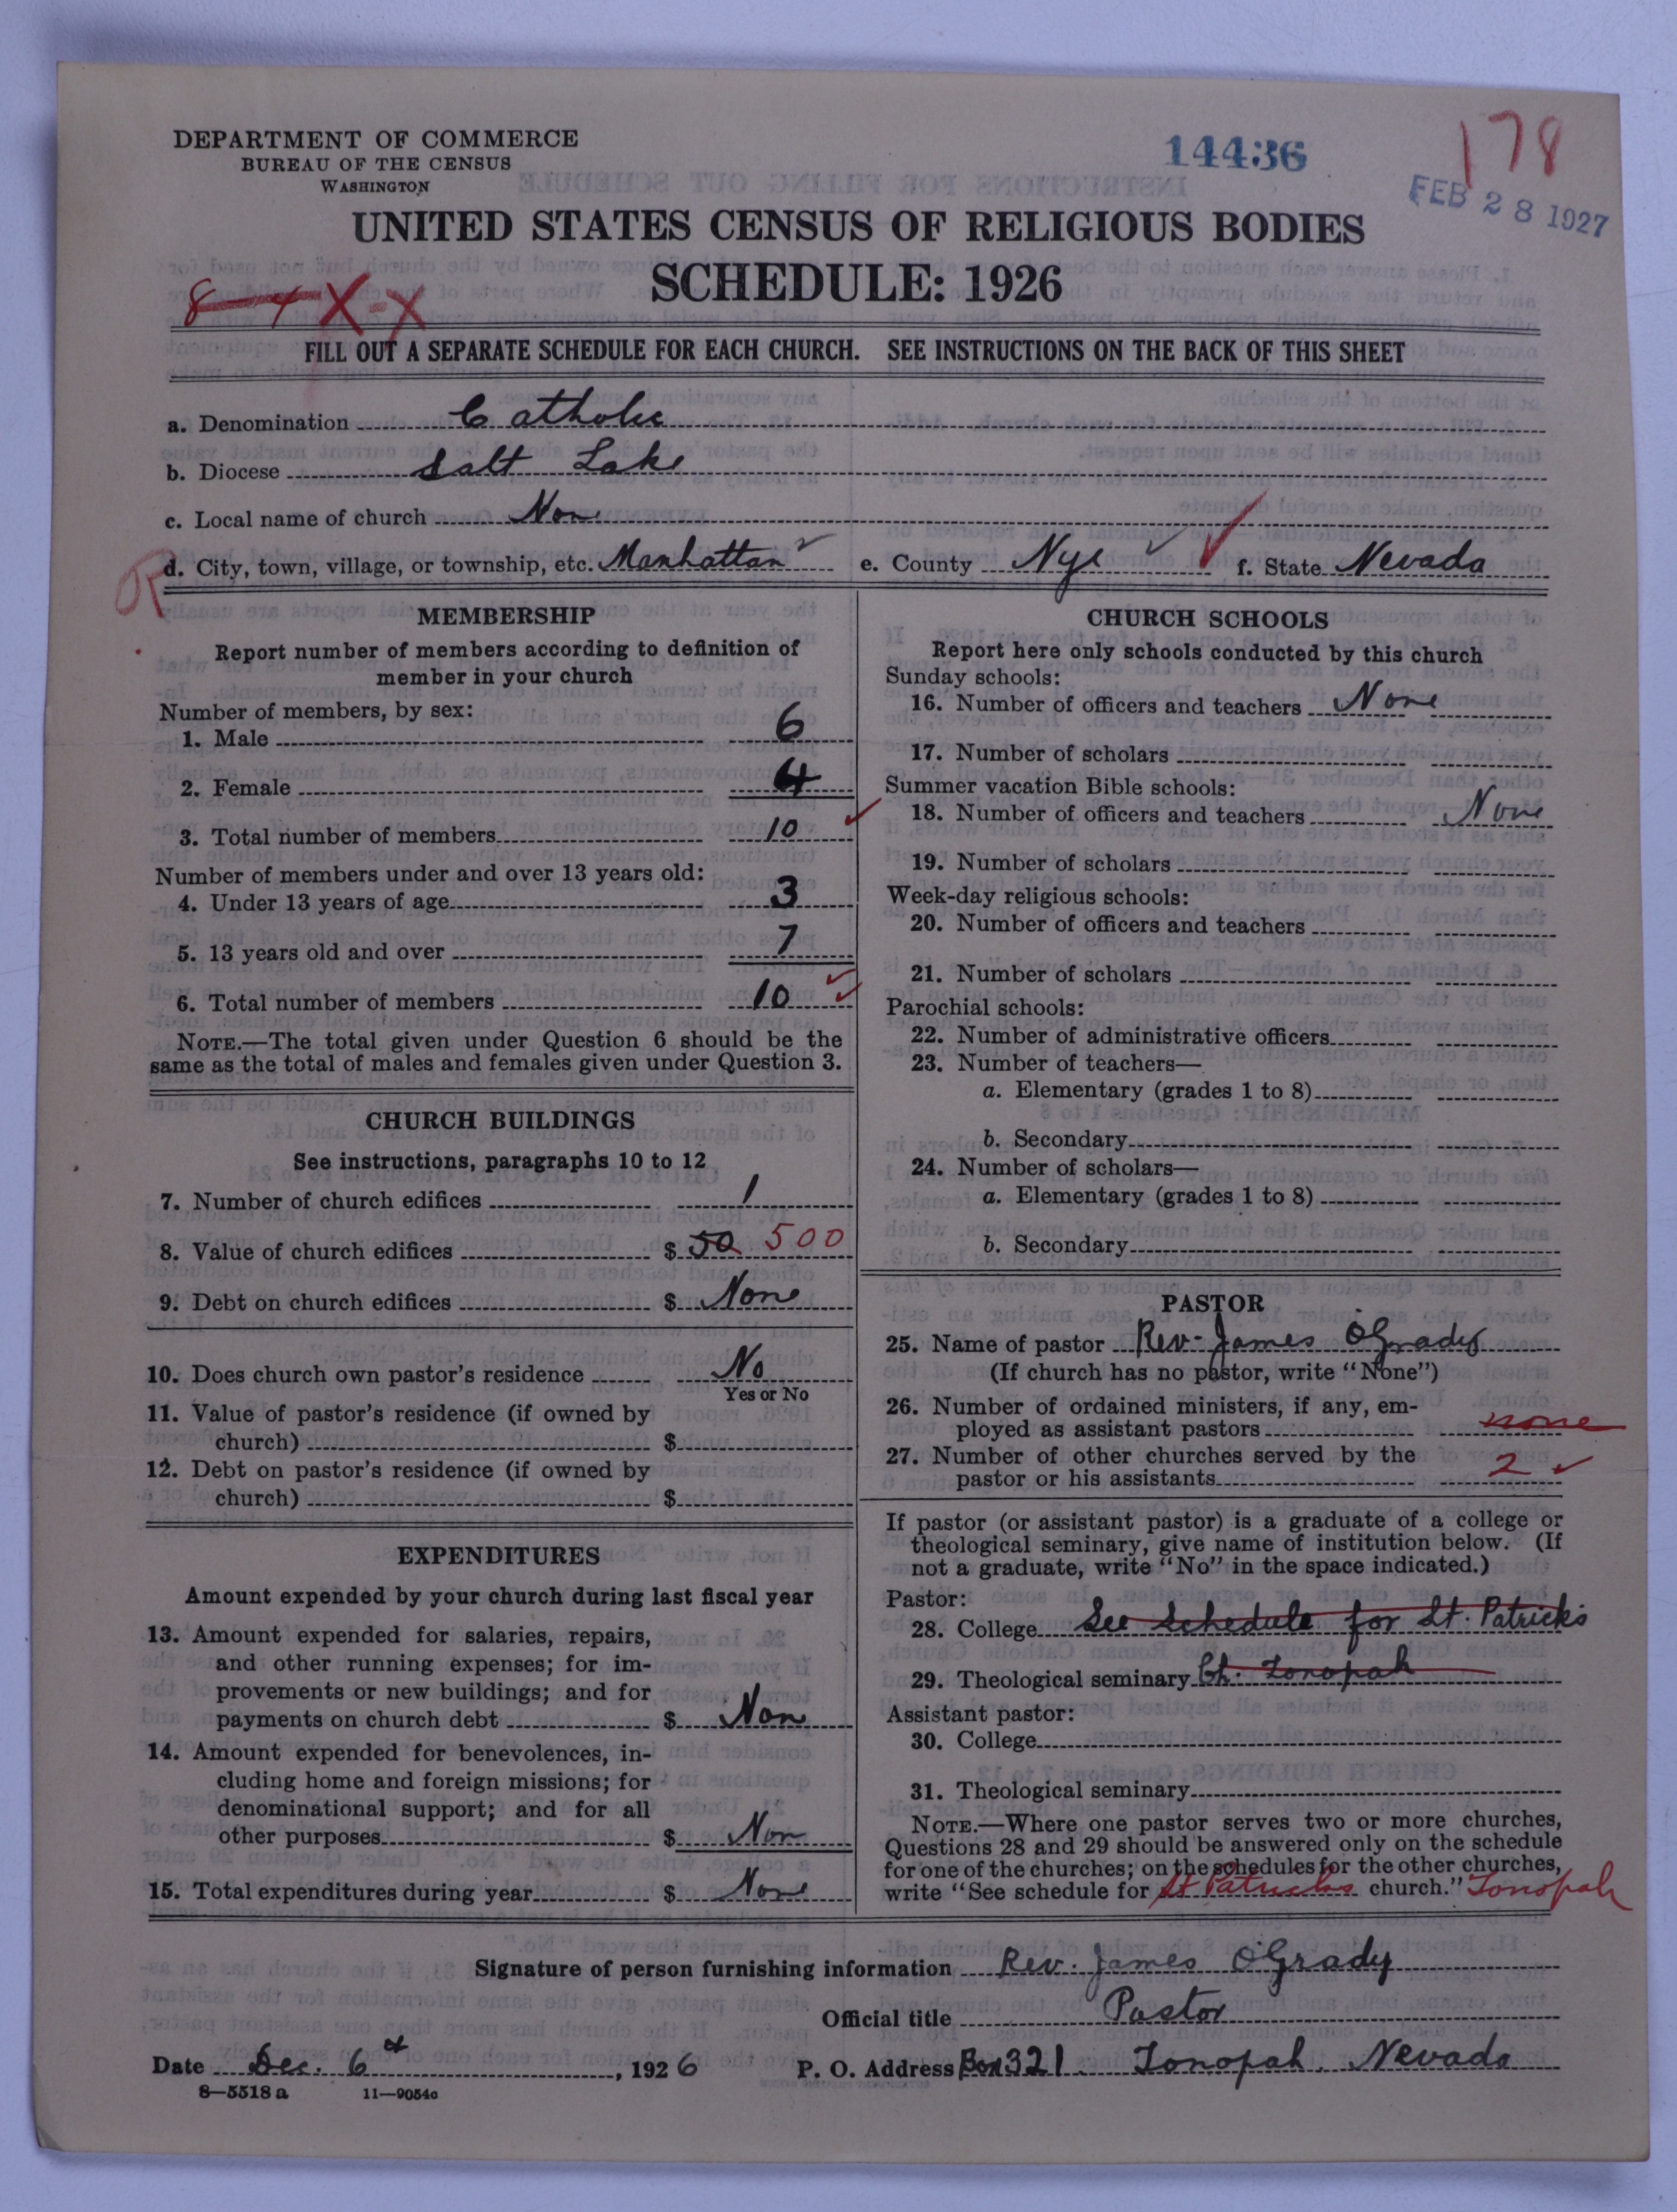 DEPARTMENT OF COMMERCE
BUREAU OF THE CENSUS
WASHINGTON
14436
178
FEB 28 1927
UNITED STATES CENSUS OF RELIGIOUS BODIES
SCHEDULE: 1926
8-4 X-X
FILL OUT A SEPARATE SCHEDULE FOR EACH CHURCH. SEE INSTRUCTIONS ON THE BACK OF THIS SHEET
a. Denomination Catholic
b. Diocese Salt Lake
c. Local name of church Non
d. City, town, village, or township, etc. Manhattan e. County Nye f. State Nevada
MEMBERSHIP
Report number of members according to definition of
member in your church
Number of members, by sex:
1. Male 6
2. Female 4
3. Total number of members 10
Number of members under and over 13 years old:
4. Under 13 years of age 3
5. 13 years old and over 7
6. Total number of members 10
NOTE.—The total given under Question 6 should be the
same as the total of males and females given under Question 3.
CHURCH BUILDINGS
See instructions, paragraphs 10 to 12
7. Number of church edifices 1
8. Value of church edifices $ 50 500
9. Debt on church edifices $ None
10. Does church own pastor's residence No
Yes or No
11. Value of pastor's residence (if owned by
church) $
12. Debt on pastor's residence (if owned by
church) $
EXPENDITURES
Amount expended by your church during last fiscal year
13. Amount expended for salaries, repairs,
and other running expenses; for im-
provements or new buildings; and for
payments on church debt $ Non
14. Amount expended for benevolences, in-
cluding home and foreign missions; for
denominational support; and for all
other purposes $ Non
15. Total expenditures during year $ None
CHURCH SCHOOLS
Report here only schools conducted by this church
Sunday schools:
16. Number of officers and teachers None
17. Number of scholars
Summer vacation Bible schools:
18. Number of officers and teachers None
19. Number of scholars
Week-day religious schools:
20. Number of officers and teachers
21. Number of scholars
Parochial schools:
22. Number of administrative officers
23. Number of teachers—
a. Elementary (grades 1 to 8)
b. Secondary
24. Number of scholars—
a. Elementary (grades 1 to 8)
b. Secondary
PASTOR
25. Name of pastor Rev. James O'Grady
(If church has no pastor, write "None")
26. Number of ordained ministers, if any, em-
ployed as assistant pastors none
27. Number of other churches served by the
pastor or his assistants 2
If pastor (or assistant pastor) is a graduate of a college or
theological seminary, give name of institution below. (If
not a graduate, write "No" in the space indicated.)
Pastor:
28. College See Schedule for St. Patricks
29. Theological seminary Ch. Tonopah
Assistant pastor:
30. College
31. Theological seminary
NOTE.—Where one pastor serves two or more churches,
Questions 28 and 29 should be answered only on the schedule
for one of the churches; on the schedules for the other churches,
write "See schedule for St Patricks church." Tonopah
Signature of person furnishing information Rev. James O'Grady
Official title Pastor
Date Dec. 6th, 1926 P. O. Address Box 321 Tonopah, Nevada
8—5518a 11—9054c